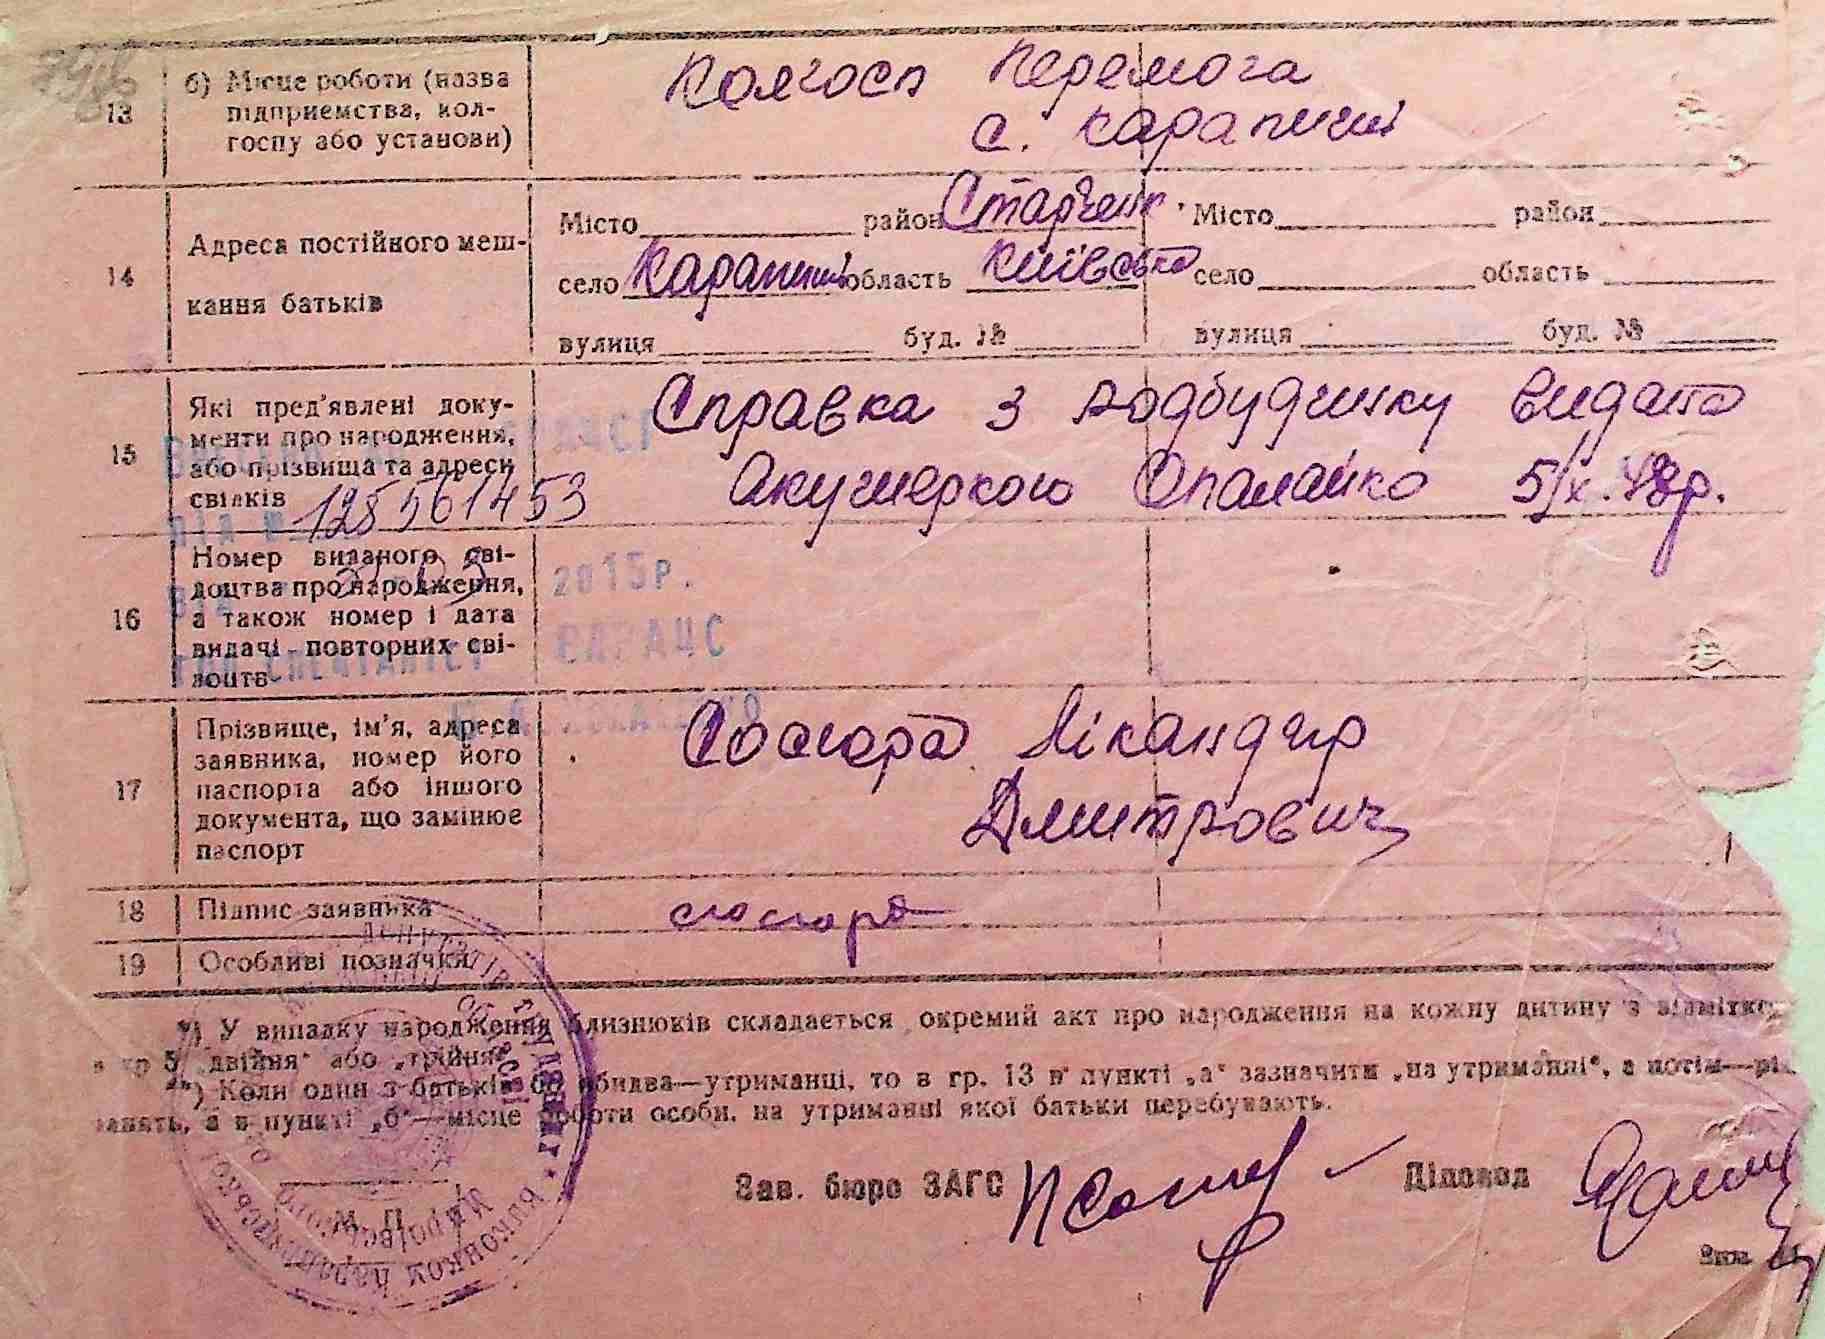 13
б) Місце роботи (назва
підприємства, кол-
госпу або установи)
Колгосп Перемога
с. Карапиши
14
Адреса постійного меш-
кання батьків
Місто район Старченк. Місто район
село Карапиши область Київська село область
вулиця буд. № вулиця буд. №
15
Які пред'явлені доку-
менти про народження,
або прізвища та адреси
свідків
Справка з родбудинку видана
Акушеркою Опалайко 5/X.48р.
128561453
16
Номер виданого сві-
доцтва про народження,
а також номер і дата
видачі повторних сві-
доцтв
2015р.
ЄДРАЦС
17
Прізвище, ім'я, адреса
заявника, номер його
паспорта або іншого
документа, що замінює
паспорт
Сосюра Лікандир
Дмитрович
18 Підпис заявника
сюсюра
19 Особливі позначки
*) У випадку народження близнюків складається окремий акт про народження на кожну дитину з відміткою
в гр 5 „двійня" або „трійня"
**) Коли один з батьків бо обидва—утриманці, то в гр. 13 в пункті „а" зазначити „на утриманні", а потім—рід
занять, а в пункті „б"—місце роботи особи, на утриманні якої батьки перебувають.
М. П.
Зав. бюро ЗАГС Діловод